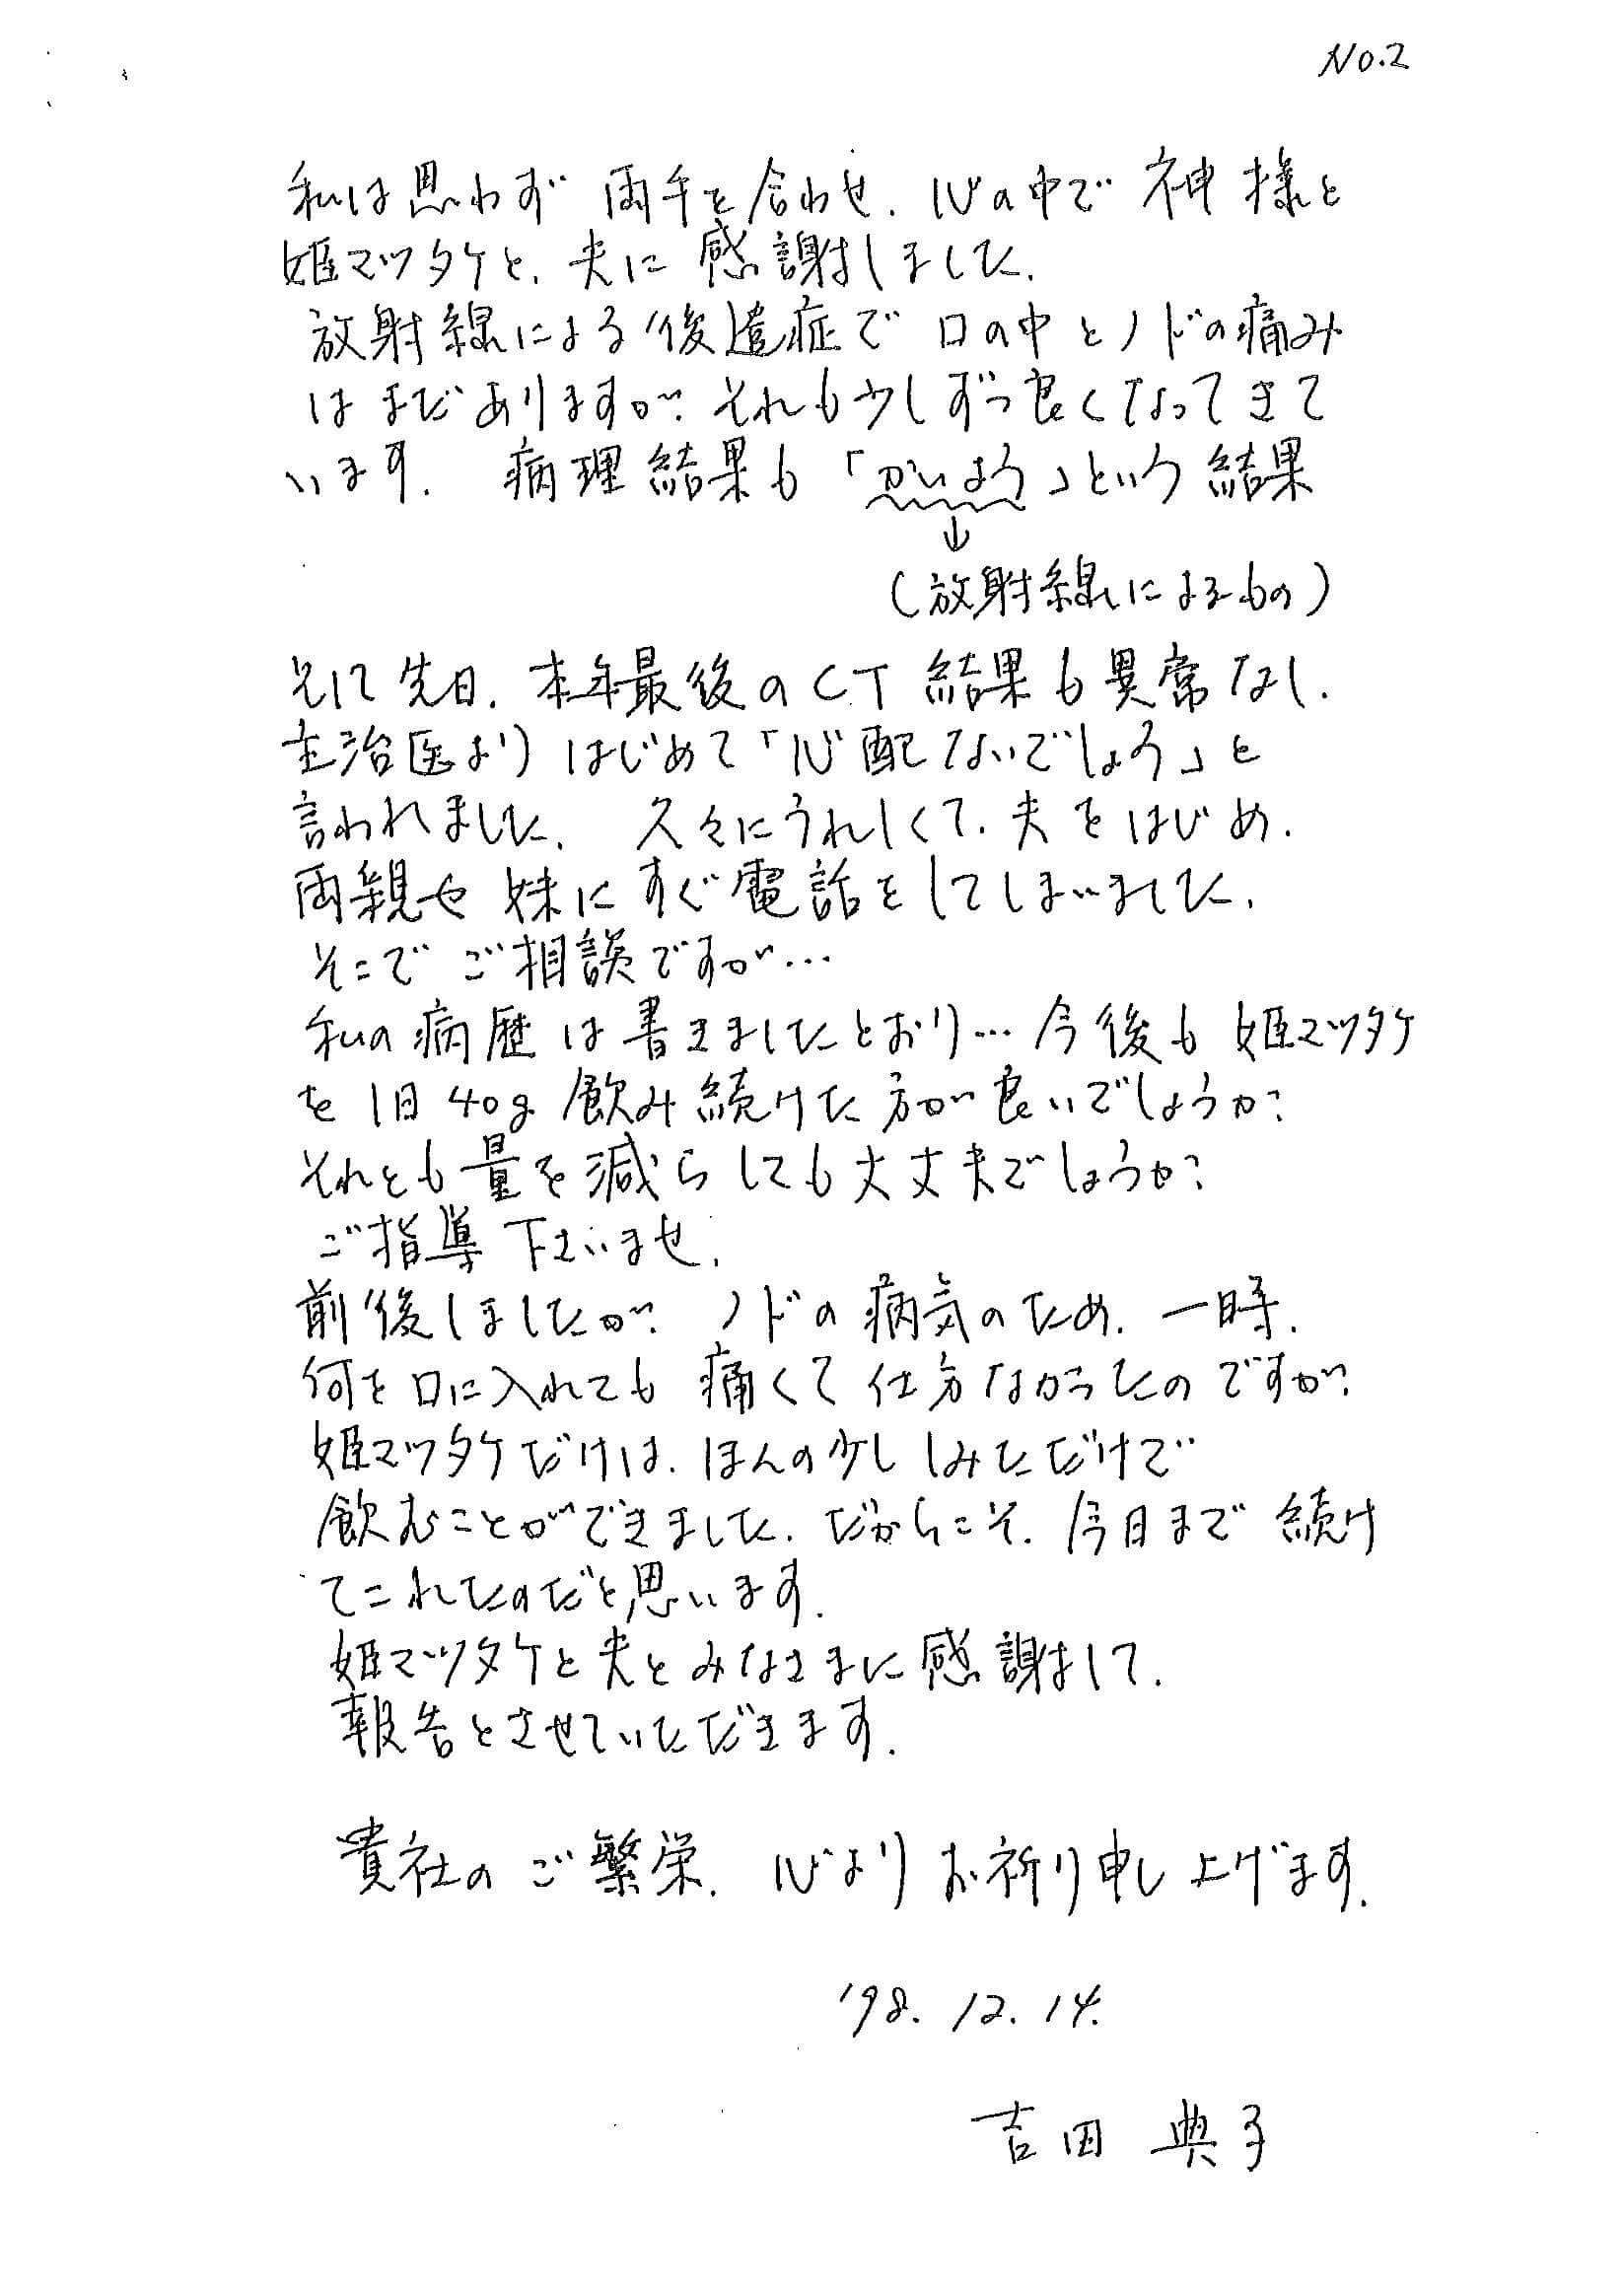 No.2
私は思わず 両手を合わせ、心の中で 神様と
姫マツタケと、夫に 感謝しました。
放射線による後遺症で 口の中とノドの痛み
はまだありますが、それも少しずつ良くなってきて
います。 病理結果も「かいよう」という結果
↓
(放射線によるもの)
そして先日、本年最後のCT結果も異常なし、
主治医より はじめて「心配ないでしょう」と
言われました。 久々にうれしくて、夫をはじめ、
両親や妹にすぐ電話をしてしまいました。
そこで ご相談ですが…
私の病歴は書きましたとおり…今後も 姫マツタケ
を1日40g飲み続けた方が良いでしょうか?
それとも量を減らしても大丈夫でしょうか?
ご指導下さいませ。
前後しましたが、 ノドの病気のため、一時、
何を口に入れても 痛くて仕方なかったのですが、
姫マツタケだけは、ほんの少ししみただけで
飲むことができました。だからこそ、今日まで続け
てこれたのだと思います。
姫マツタケと夫とみなさまに感謝して、
報告とさせていただきます。
貴社の ご繁栄、心より お祈り申し上げます。
'98. 12. 14.
吉田 典子